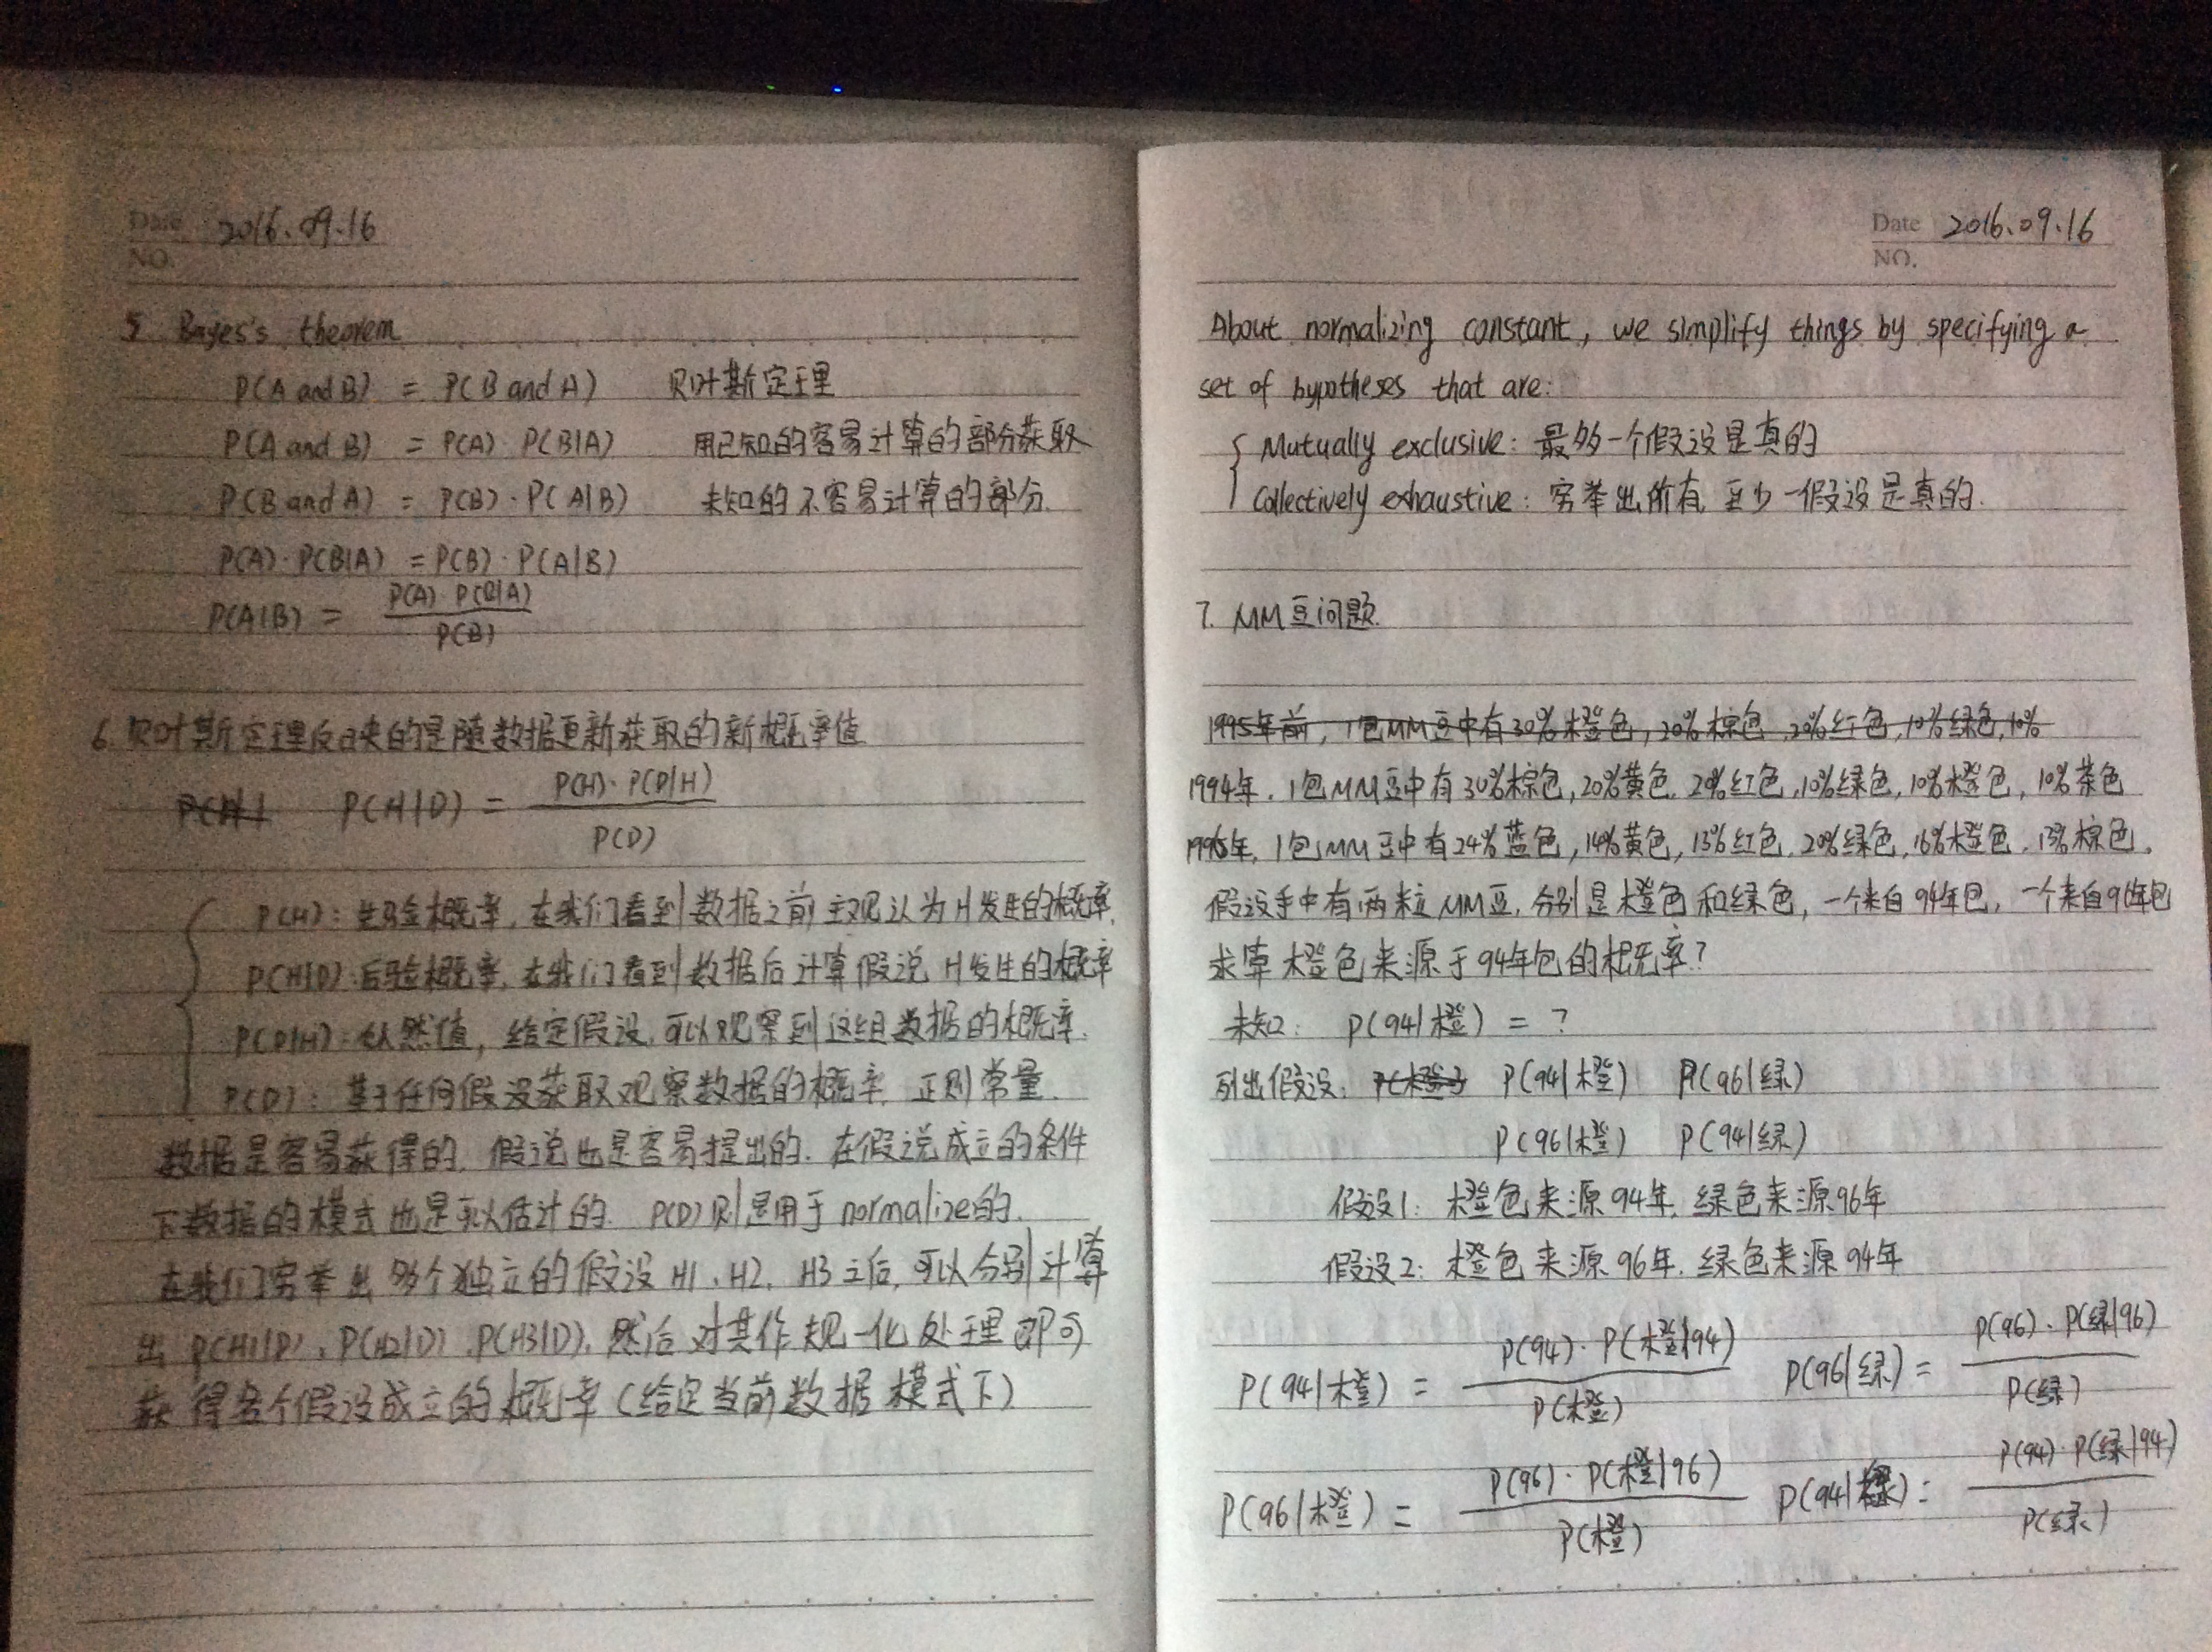 Date 2016.09.16
NO.
5. Bayes's theorem
P(A and B) = P(B and A) 贝叶斯定理
P(A and B) = P(A)·P(B|A) 用已知的容易计算的部分获取
P(B and A) = P(B)·P(A|B) 未知的不容易计算的部分.
P(A)·P(B|A) = P(B)·P(A|B)
P(A|B) = P(A)·P(B|A) / P(B)
6. 贝叶斯定理反映的是随数据更新获取的新概率值
P(H| P(H|D) = P(H)·P(D|H) / P(D)
P(H): 先验概率, 在我们看到数据之前主观认为H发生的概率.
P(H|D): 后验概率, 在我们看到数据后计算假说H发生的概率
P(D|H): 似然值, 给定假设, 可以观察到这组数据的概率.
P(D): 基于任何假设获取观察数据的概率, 正则常量.
数据是容易获得的, 假说也是容易提出的. 在假说成立的条件
下数据的模式也是可以估计的. P(D)则是用于normalize的.
在我们穷举出多个独立的假设H1, H2, H3之后, 可以分别计算
出P(H1|D), P(H2|D), P(H3|D), 然后对其作规一化处理即可
获得各个假设成立的概率(给定当前数据模式下)
Date 2016.09.16
NO.
About normalizing constant, we simplify things by specifying a
set of hypotheses that are:
Mutually exclusive: 最多一个假设是真的
Collectively exhaustive: 穷举出所有, 至少一假设是真的.
7. MM豆问题.
1995年前, 1包MM豆中有30%橙色, 20%棕色, 20%红色, 10%绿色, 10%
1994年, 1包MM豆中有30%棕色, 20%黄色, 20%红色, 10%绿色, 10%橙色, 10%茶色
年, 1包MM豆中有24%蓝色, 14%黄色, 13%红色, 20%绿色, 16%橙色, 13%棕色.
假设手中有两粒MM豆, 分别是橙色和绿色, 一个来自94年包, 一个来自96年包
求算橙色来源于94年包的概率?
未知: P(94|橙) = ?
列出假设: P(橙 P(94|橙) P(96|绿)
P(96|橙) P(94|绿)
假设1: 橙色来源94年, 绿色来源96年
假设2: 橙色来源96年, 绿色来源94年
P(94|橙) = P(94)·P(橙|94) / P(橙) P(96|绿) = P(96)·P(绿|96) / P(绿)
P(96|橙) = P(96)·P(橙|96) / P(橙) P(94|绿) = P(94)·P(绿|94) / P(绿)